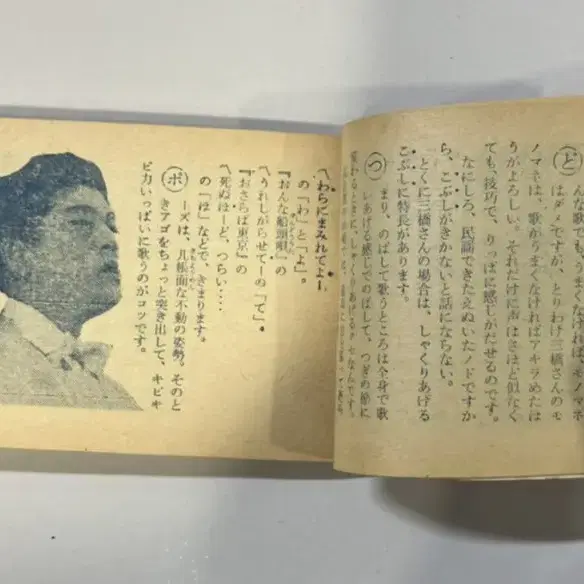 ど
んな歌でも、うまくなければモノマネ
はダメですが、とりわけ三橋さんのモ
ノマネは、歌がうまくなければアキラめたほ
うがよろしい。それだけに声はさほど似なく
ても、技巧で、りっぱに感じがだせるのです。
なにしろ、民謡できたえぬいたノドですか
ら、こぶしがきかないと話にならない。
とくに三橋さんの場合は、しゃくりあげる
こぶしに特長があります。
つ
まり、のばして歌うところは全身で歌
いあげる感じでのばして、つぎの節に
変わるときに、しゃりあげるクセなんです。
〽わらにまみれてよー
の「わ」と「よ」。
『おんな船頭唄』の
〽うれしがらせてーの「て」。
『おさらば東京』の
〽死ぬほしど、つらい‥‥
の「ほ」などで、きまります。
ポ
ーズは、几帳面な不動の姿勢。そのと
きアゴをちょっと突き出して、キビキ
ビ力いっぱいに歌うのがコツです。